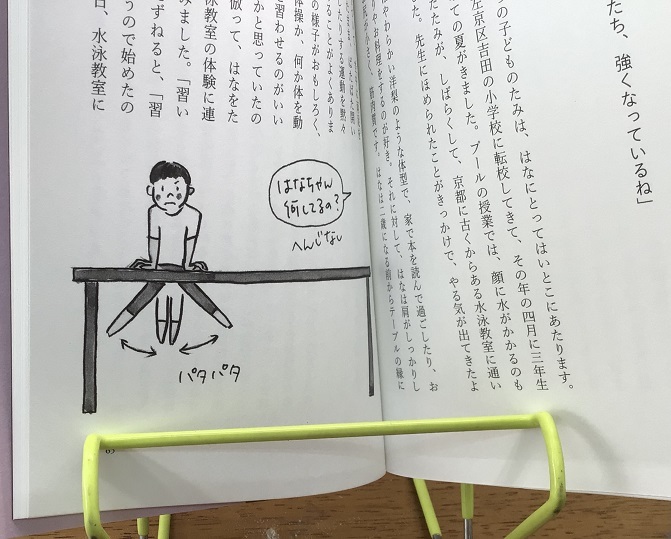 たち、強くなっているね」
の子どものたみは、はなにとってはいとこにあたります。
左京区吉田の小学校に転校してきて、その年の四月に三年生
ての夏がきました。プールの授業では、顔に水がかかるのも
たたみが、しばらくして、京都に古くからある水泳教室に通い
た。先生にほめられたことがきっかけで、やる気が出てきたよ
はやわらかい洋梨のような体型で、家で本を読んで過ごしたり、お
りやお料理をするのが好き。それに対して、はなは肩がしっかりし
筋肉質です。はなは二歳になる前からテーブルの縁に
たりする運動を黙々
ることがよくありま
の様子がおもしろく、
体操か、何か体を動
習わせるのがいい
かと思っていたの
倣って、はなをた
泳教室の体験に連
みました。「習い
ずねると、「習
うので始めたの
日、水泳教室に
はなちゃん
何してるの?
へんじなし
パタパタ